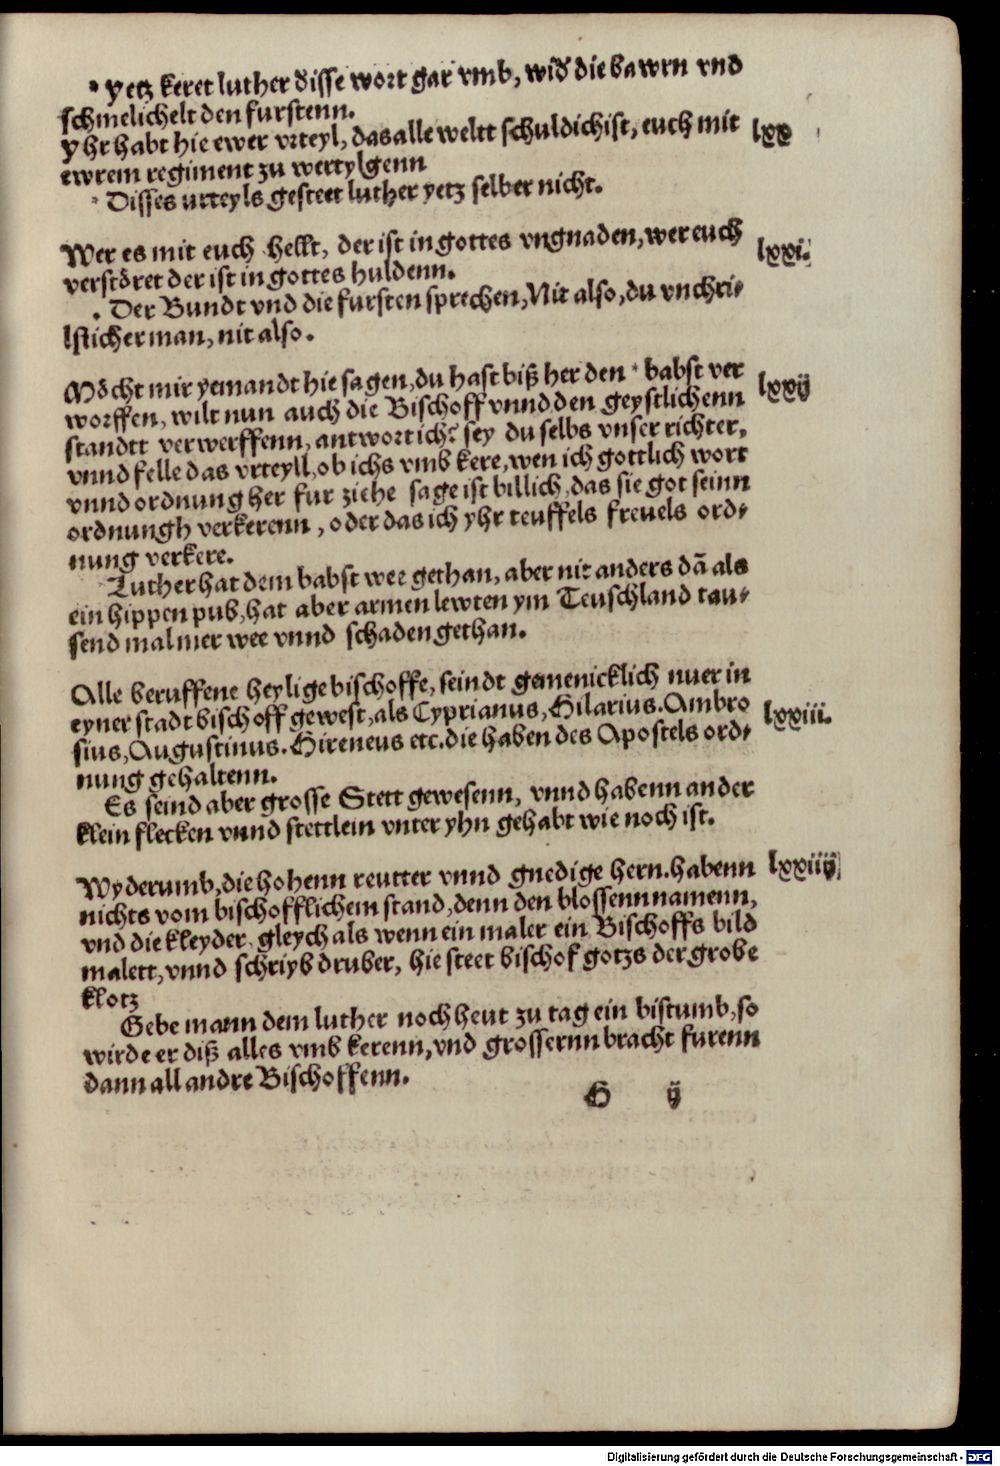 yetz keret luther disse wort gar vmb, wid̕ die bawrn vnd
schmelichelt den furstenn.
yhr habt hie ewer vrteyl, das alle weltt schuldich ist, euch mit lxx
ewrem regiment zu wertylgenn
Disses urteyls gesteet luther yetz selber nicht.
Wer es mit euch hellt, der ist in gottes vngnaden, wer euch lxxi.
verstöret der ist in gottes huldenn.
Der Bundt vnd die fursten sprechen, Nit also, du vnchri-
lsticher man, nit also.
Möcht mir yemandt hie sagen, du hast biß her den babst ver lxxij
worffen, wilt nun auch die Bischoff vnnd den geystlichenn
standtt verwerffenn, antwort ich: sey du selbs vnser richter,
vnnd felle das vrteyll, ob ichs vmb kere, wen ich gottlich wort
vnnd ordnung her fur ziehe sage ist billich, das sie got seinn
ordnungh verkerenn, oder das ich yhr teuffels freuels ord-
nung verkere.
Luther hat dem babst wee gethan, aber nit anders dā als
ein hippen pub, hat aber armen lewten ym Teuschland tau-
send mal mer wee vnnd schaden gethan.
Alle beruffene heylige bischoffe, seindt gemenicklich nuer in
eyner stadt bischoff gewest, als Cyprianus, Hilarius. Ambro lxxiii.
sius, Augustinus. Hireneus etc. die haben des Apostels ord-
nung gehaltenn.
Es seind aber grosse Stett gewesenn, vnnd habenn ander
klein flecken vnnd stettlein vnter yhn gehabt wie noch ist.
Wyderumb, die hohenn reutter vnnd gnedige hern. habenn lxxiiij
nichts vom bischofflichem stand, denn den blossenn namenn,
vnd die kleyder, gleych als wenn ein maler ein Bischoffs bild
malett, vnnd schriyb druber, hie steet bischof gotzs der grobe
klotz
Gebe mann dem luther noch heut zu tag ein bistumb, so
wirde er diß alles vmb kerenn, vnd grossernn bracht furenn
dann all andre Bischoffenn.
G ij
Digitalisierung gefördert durch die Deutsche Forschungsgemeinschaft - DFG